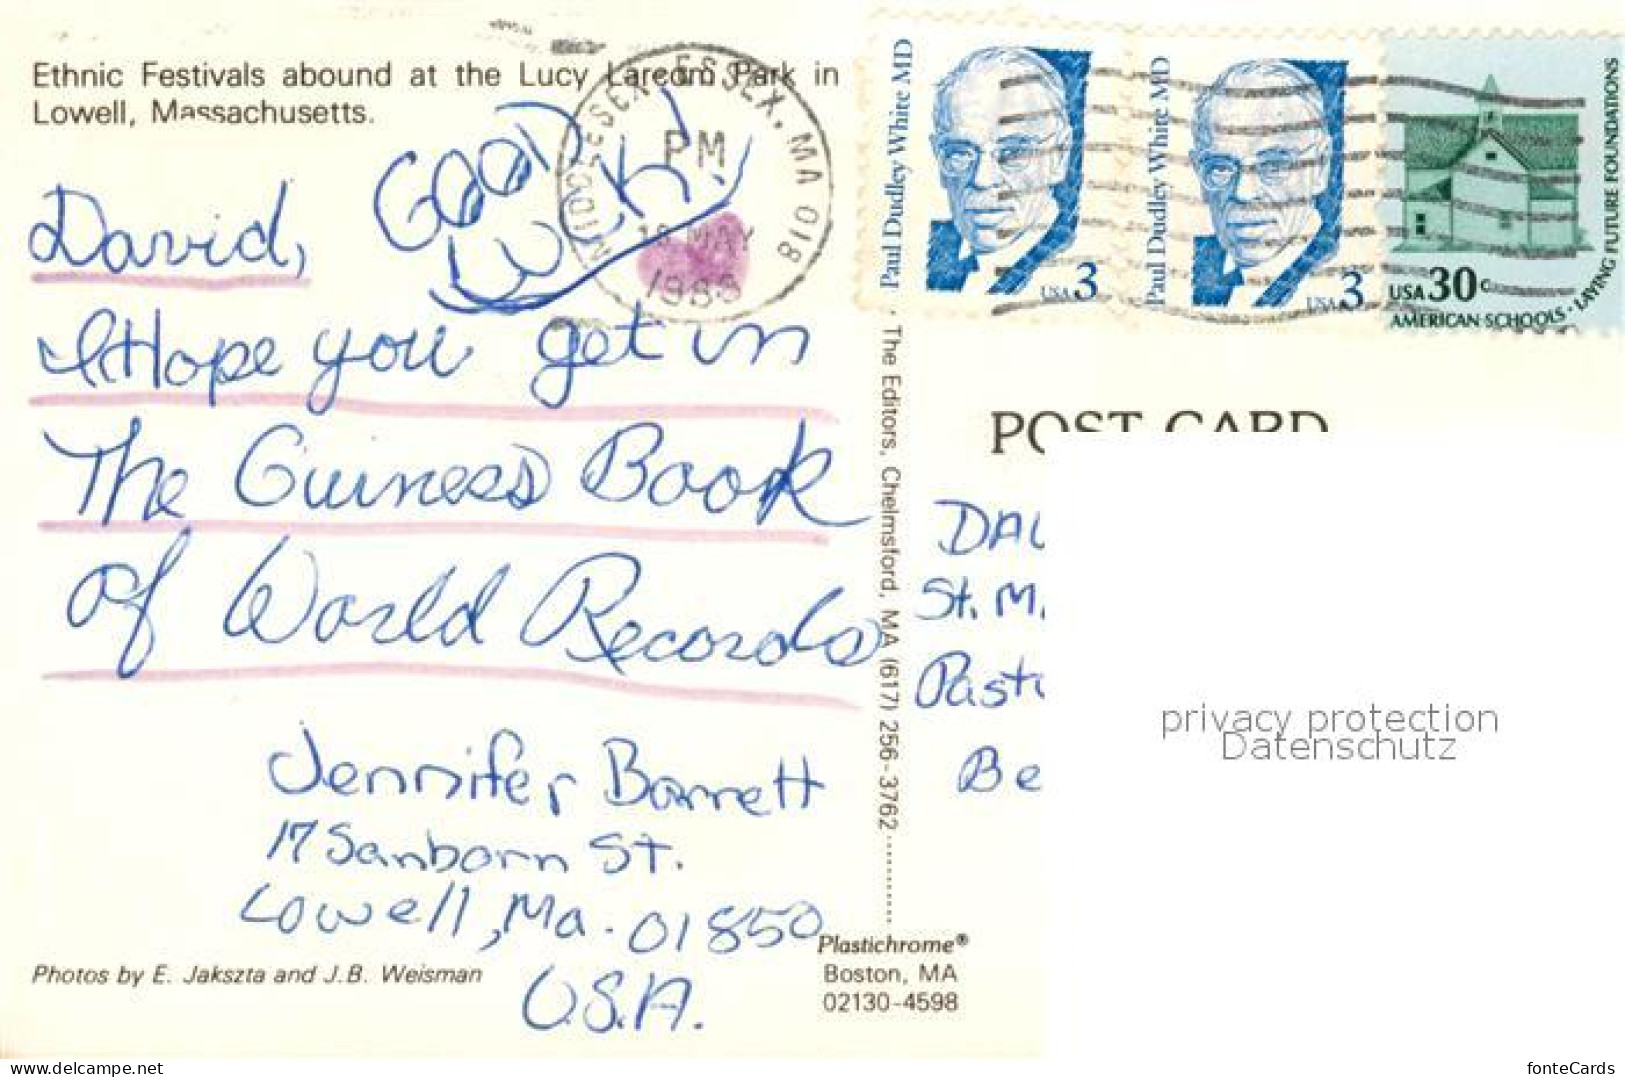 Ethnic Festivals abound at the Lucy Larcom Park in
Lowell, Massachusetts.
GOOD
LUCK!
MIDDLESEX-ESSEX, MA 018
PM
MAY
David,
I Hope you get in
The Guiness Book
of World Records
Jennifer Barrett
17 Sanborn St.
Lowell, Ma. 01850
U.S.A.
Photos by E. Jakszta and J.B. Weisman
The Editors, Chelmsford, MA (617) 256-3762
Plastichrome®
Boston, MA
02130-4598
Paul Dudley White MD
USA 3
Paul Dudley White MD
USA 3
USA 30c
AMERICAN SCHOOLS · LAYING FUTURE FOUNDATIONS
POST CARD
St. M.
Be
privacy protection
Datenschutz
www.delcampe.net
fonteCards